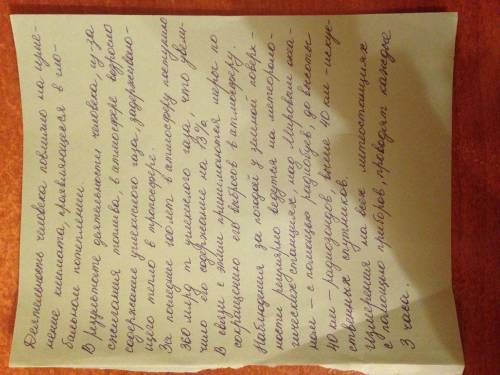 Деятельность человека повлияло на изме-
нение климата, проявляющееся в гло-
бальном потеплении.
В результате деятельности человека, из-за
сжигания топлива, в атмосфере возросло
содержание углекислого газа, задерживаю-
щего тепло в тропосфере.
За последние 100 лет в атмосферу поступило
360 млрд т углекислого газа, что увели-
чило его содержание на 13%.
В связи с этим принимаются меры по
сокращению его выбросов в атмосферу.
Наблюдения за погодой у земной поверх-
ности регулярно ведутся на метеороло-
гических станциях, над Мировым океа-
ном - с помощью радиобуев, до высоты
40 км - радиозондов, выше 40 км - искус-
ственных спутников.
Измерения на всех метеостанциях
с помощью приборов, проводят каждые
3 часа.